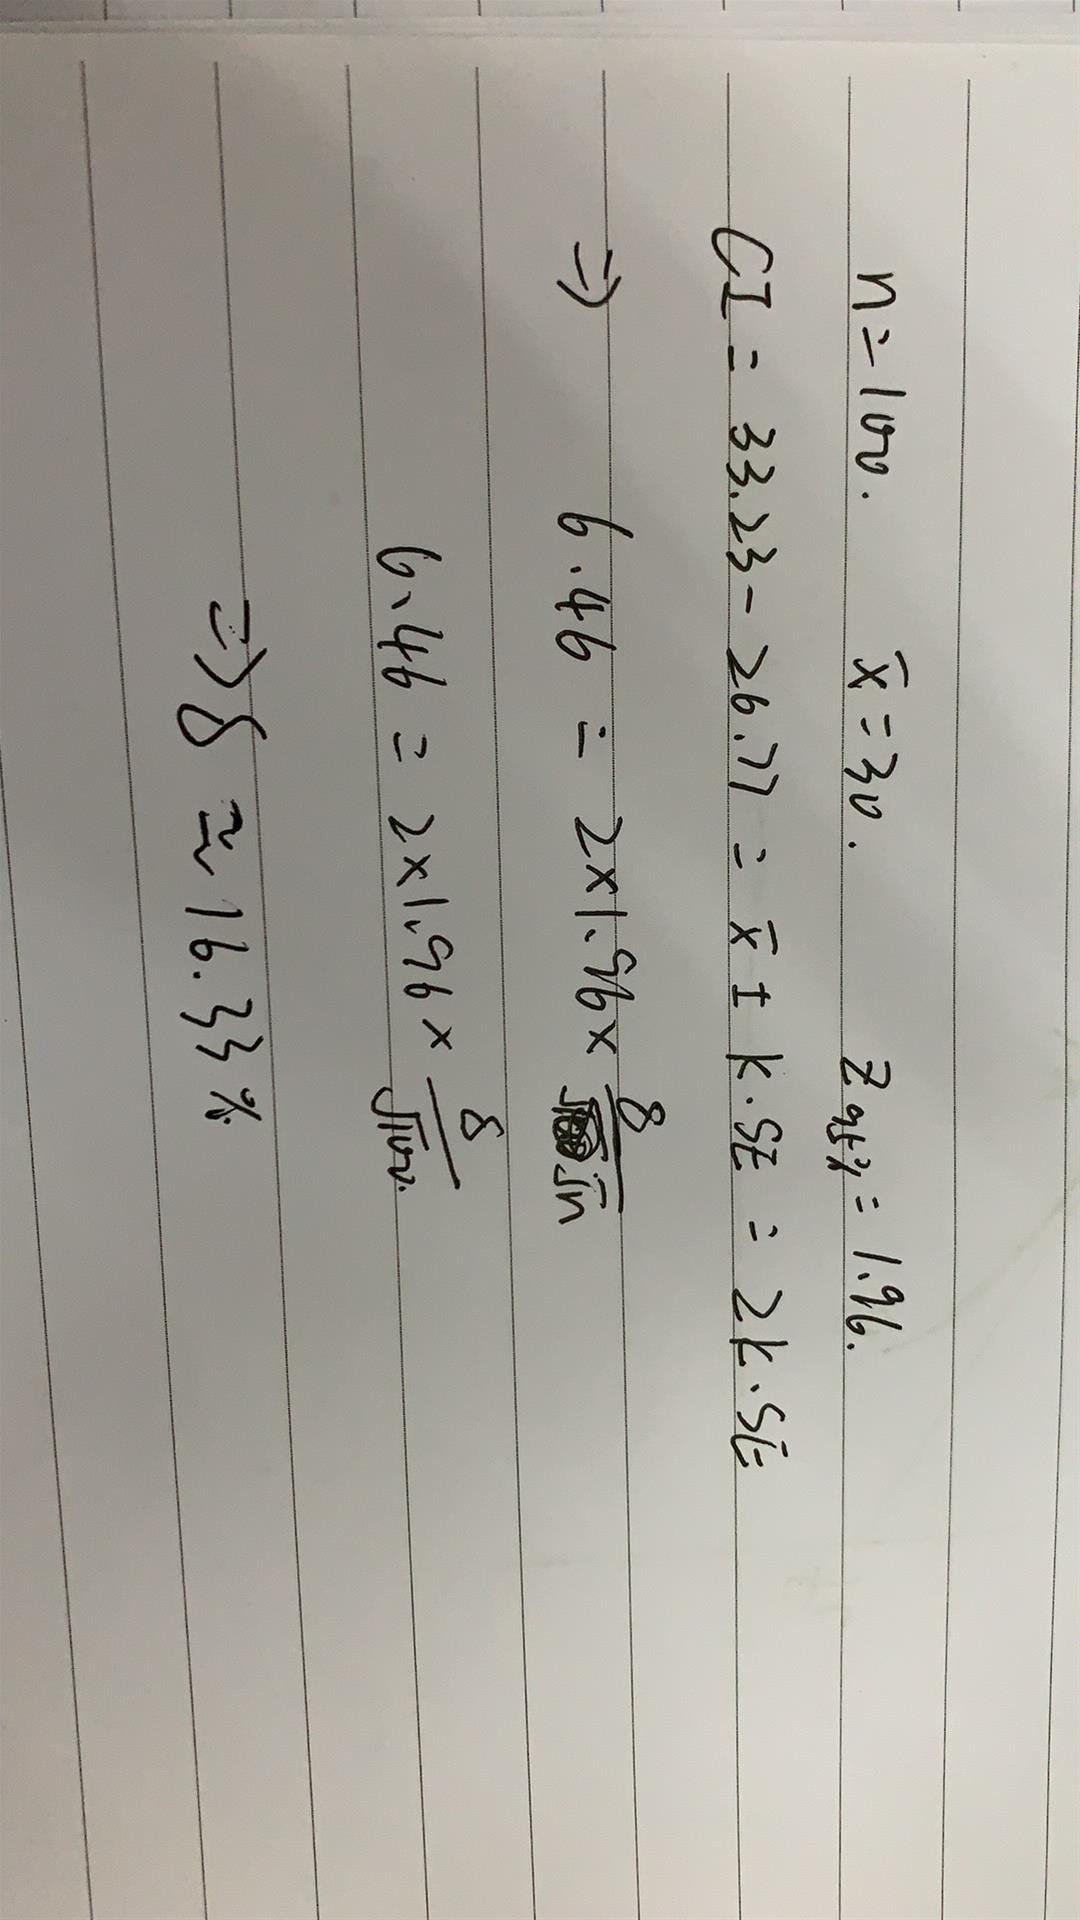 n = 100. x̄ = 30. Z95% = 1.96.
CI = 33.23 - 26.77 = x̄ ± k·SE = 2k·SE
=> 6.46 = 2×1.96× δ/√n
6.46 = 2×1.96 × δ/√100.
=> δ ≈ 16.33%